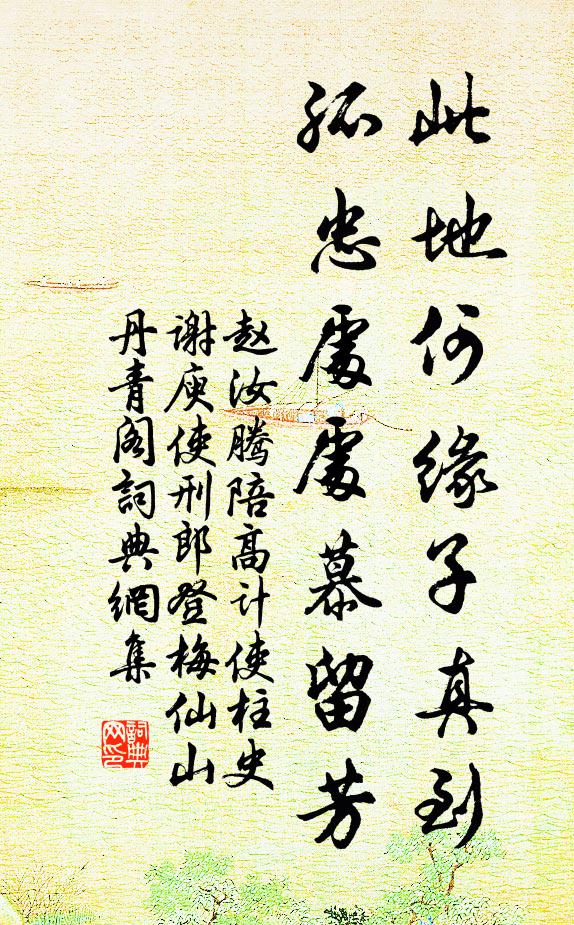 此地何缘子真到
孤忠處處慕留芳
赵汝腾陪高计使柱史
谢庾使刑郎登梅仙山
丹青阁詞典網集
詞典
网印